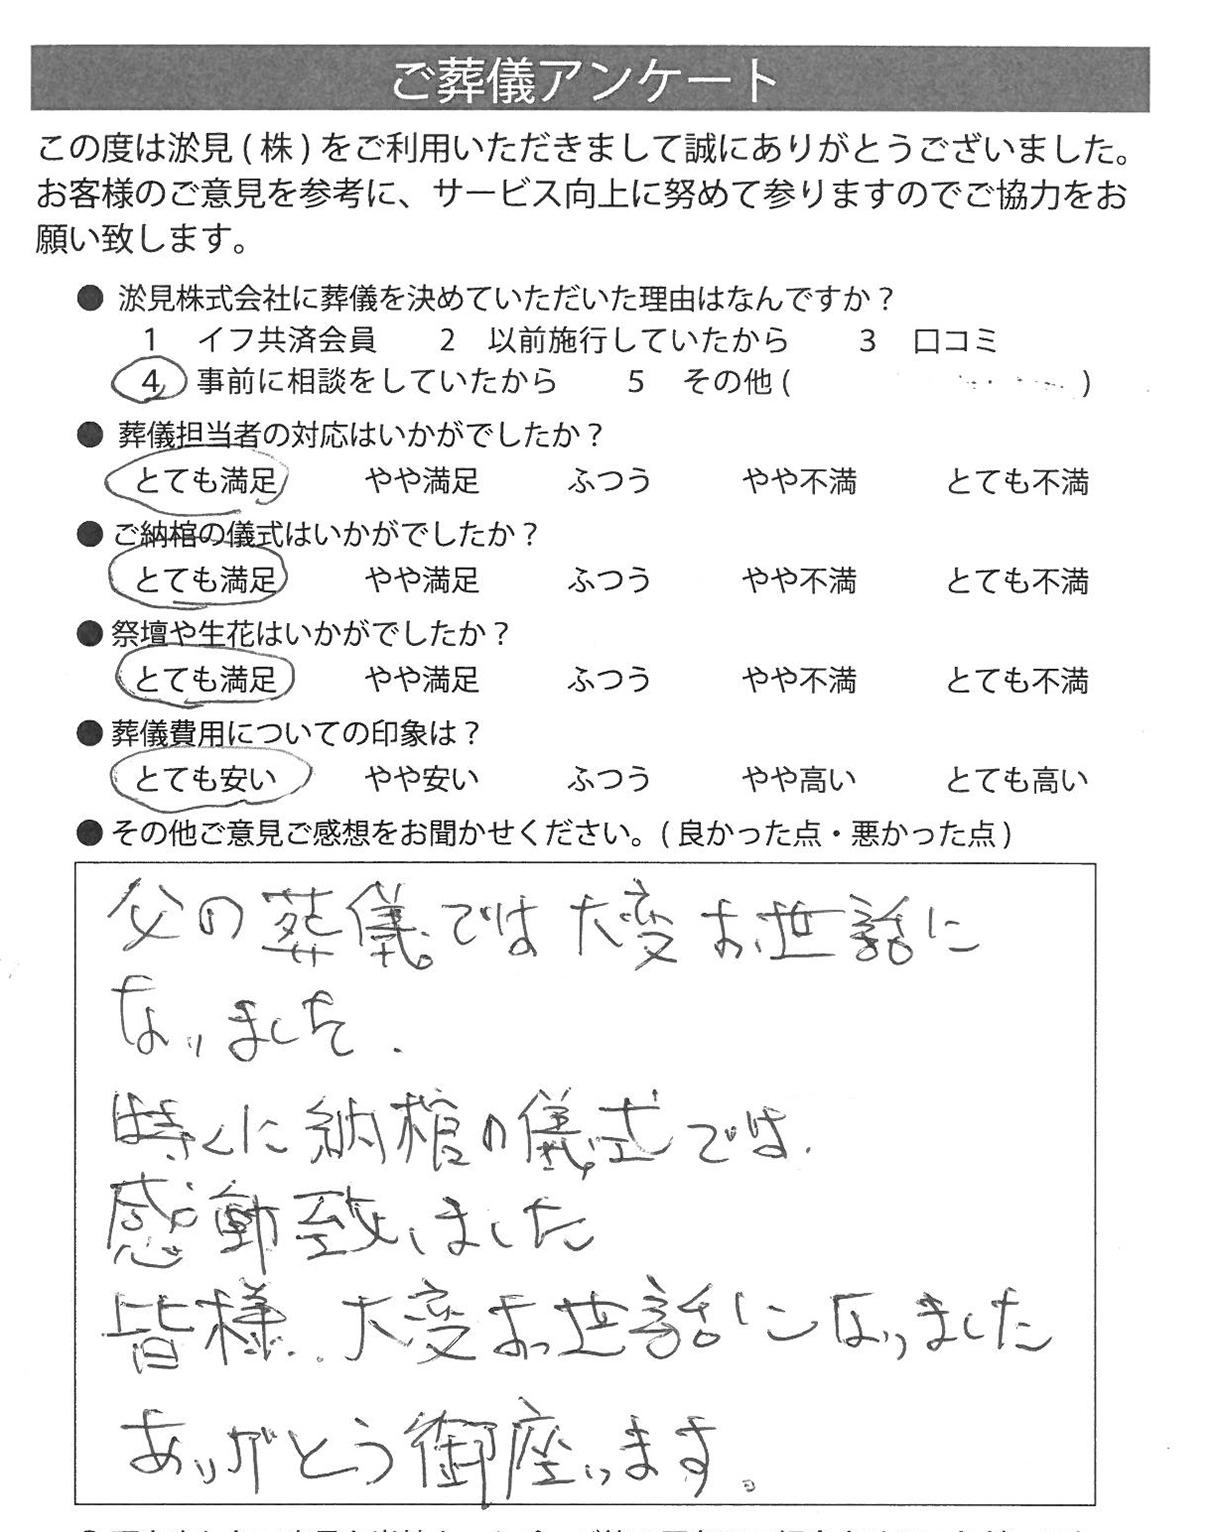 ご葬儀アンケート
この度は淤見(株)をご利用いただきまして誠にありがとうございました。
お客様のご意見を参考に、サービス向上に努めて参りますのでご協力をお
願い致します。
● 淤見株式会社に葬儀を決めていただいた理由はなんですか？
1 イフ共済会員 2 以前施行していたから 3 口コミ
4 事前に相談をしていたから 5 その他( )
● 葬儀担当者の対応はいかがでしたか？
とても満足 やや満足 ふつう やや不満 とても不満
● ご納棺の儀式はいかがでしたか？
とても満足 やや満足 ふつう やや不満 とても不満
● 祭壇や生花はいかがでしたか？
とても満足 やや満足 ふつう やや不満 とても不満
● 葬儀費用についての印象は？
とても安い やや安い ふつう やや高い とても高い
● その他ご意見ご感想をお聞かせください。(良かった点・悪かった点)
父の葬儀では大変お世話に
なりました.
時くに納棺の儀式では.
感動致しました
皆様、大変お世話になりました
ありがとう御座います。